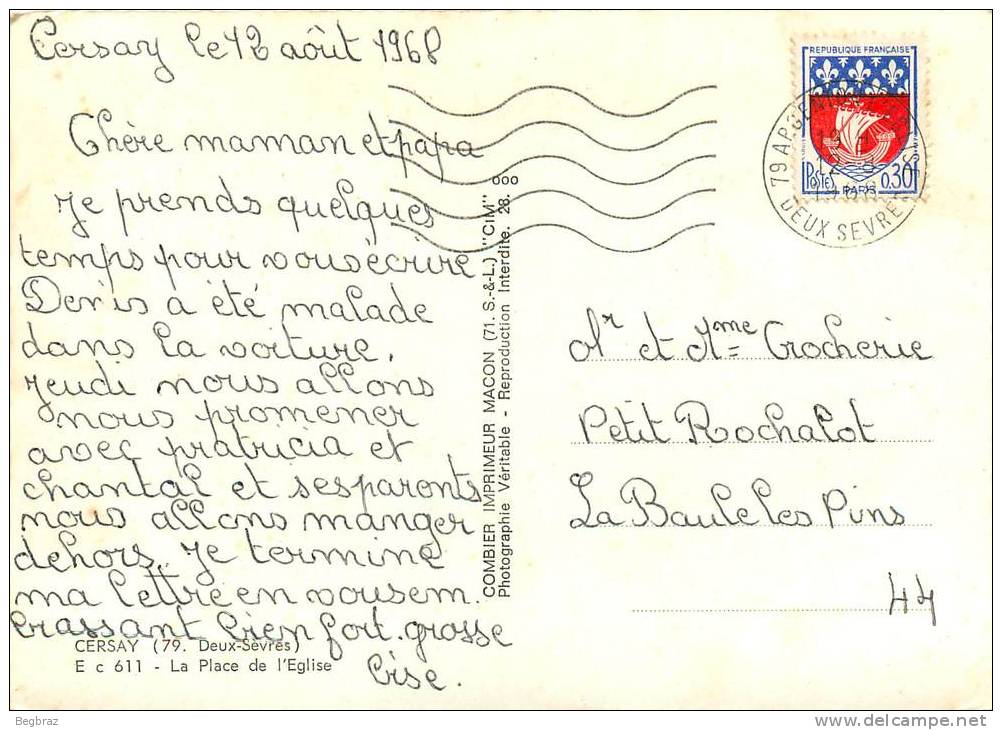 Cersay le 12 août 1968
Chère maman et papa
Je prends quelques
temps pour vous écrire
Denis a été malade
dans la voiture,
Jeudi nous allons
nous promener
avec pratricia et
chantal et ses parents
nous allons manger
dehors. Je termine
ma lettre en vous em.
brassant bien fort. grosse
bise.
CERSAY (79. Deux-Sèvres)
E c 611 - La Place de l'Eglise
COMBIER IMPRIMEUR MACON (71. S.-&-L.) "CIM"
Photographie Véritable - Reproduction Interdite. 28. ooo
REPUBLIQUE FRANÇAISE
Postes
0.30F
PARIS
79 ARGENTON
DEUX SEVRES
Mr et Mme Crocherie
Petit Rochalot
La Baule les Pins
44
Begbraz
www.delcampe.net